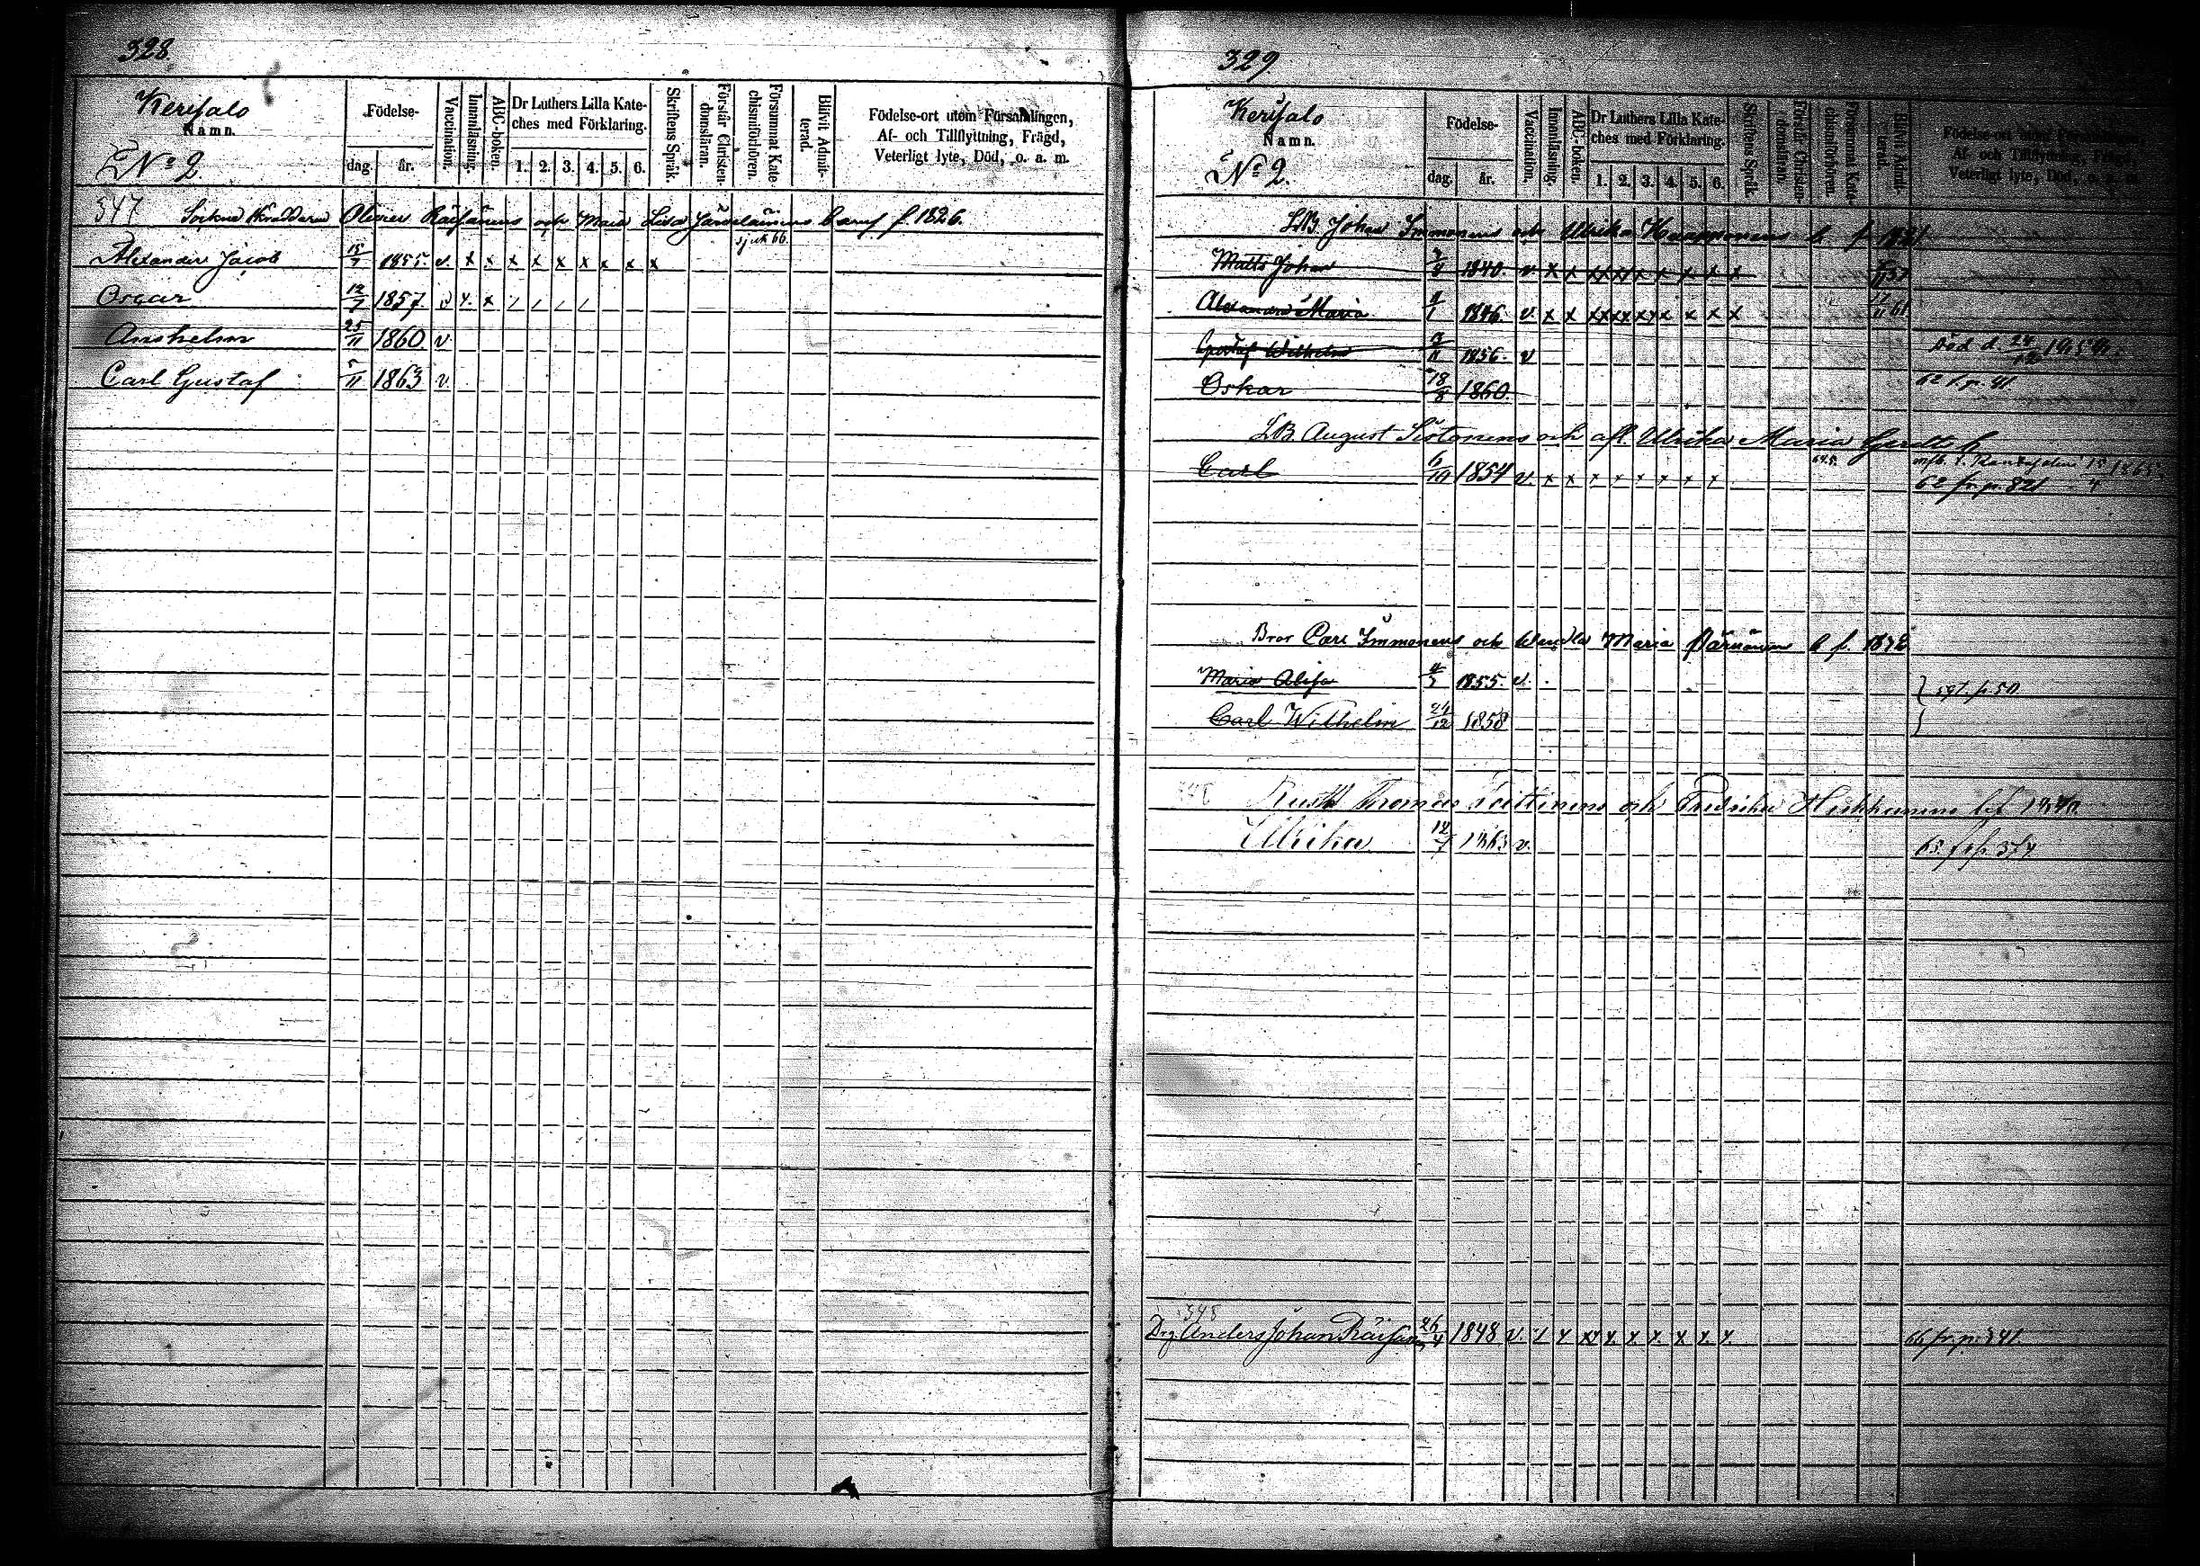 328.
Kerisalo
Namn.
No 2
Födelse-
dag. år.
Vaccination.
Innanläsning.
ABC-boken.
Dr Luthers Lilla Kate-
ches med Förklaring.
1. 2. 3. 4. 5. 6.
Skriftens Språk.
Förstår Christen-
domsläran.
Försummat Kate-
chismiförhören.
Blifvit Admit-
terad.
Födelse-ort utom Församlingen,
Af- och Tillflyttning, Frägd,
Veterligt lyte, Död, o. a. m.
347 Sockne Skräddaren Olivier Räisänens och Maria Lisa barn f. 1826.
sjuk 66.
Alexander Jacob 15/7 1855. v. x x x x x x x x x
Oscar 12/7 1857. v x x / / / /
Anshelm 25/11 1860. v.
Carl Gustaf 5/11 1863 v.
329
Kerisalo
Namn.
No 2.
Födelse-
dag. år.
Vaccination.
Innanläsning.
ABC-boken.
Dr Luthers Lilla Kate-
ches med Förklaring.
1. 2. 3. 4. 5. 6.
Skriftens Språk.
Förstår Christen-
domsläran.
Försummat Kate-
chismiförhören.
Blifvit Admit-
terad.
Födelse-ort utom Församlingen,
Af- och Tillflyttning, Frägd,
Veterligt lyte, Död, o. a. m.
LB. Johan Immonens och Ulrika b f.
Matts Johan 1840. v x x xx xx x x x x x
Alexandra Maria 4/1 1846. v. x x xx xx xx x x x x
Gustaf Wilhelm 1856. v Död d. 24/12
Oskar 18/8 1860. 62 f. p. 41
LB. August och afl. Ulrika Maria
Carl 6/10 1854 v. x x x x x x x x
62 fr. p. 821
Bror Carl Immonens och Maria Pärnänens b f.
Maria 4/3 1855. v. } p 50
Carl Wilhelm 24/12 1858
Thomas och Fredrika
Ulrika 12/7 1863 v. 65
348
Drg Anders Johan Räisänen 26/4 1848 v. x x xx x. x x. x x x. 66 fr. p. 341.